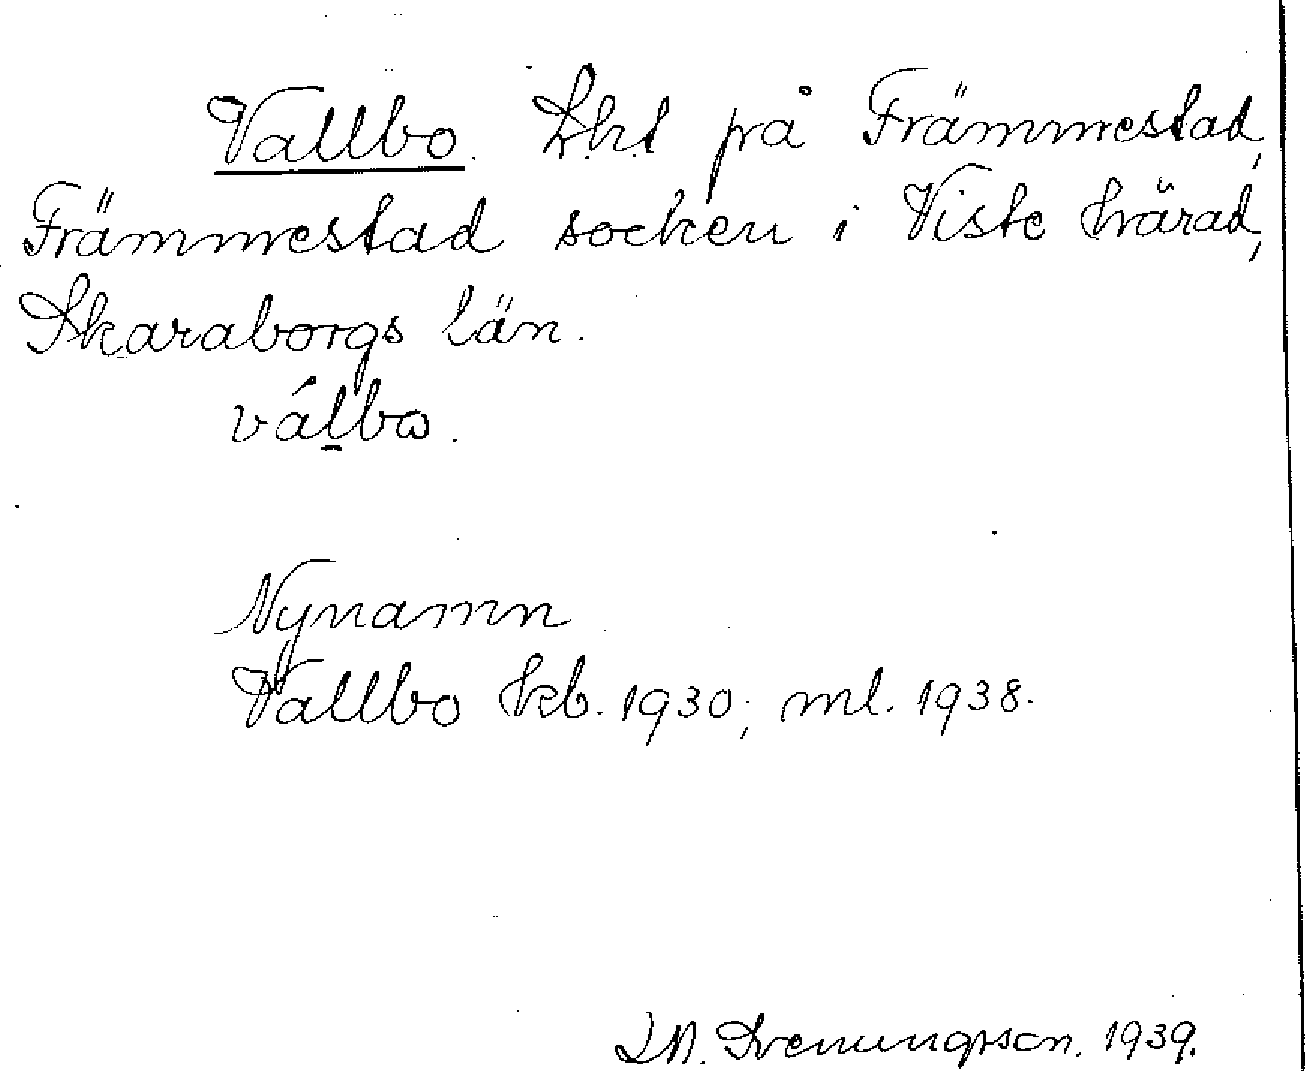 Vallbo. Lht på Främmestad,
Främmestad socken i Viste härad,
Skaraborgs län.
válbω.
Nynamn
Vallbo kb. 1930; ml. 1938.
1939.